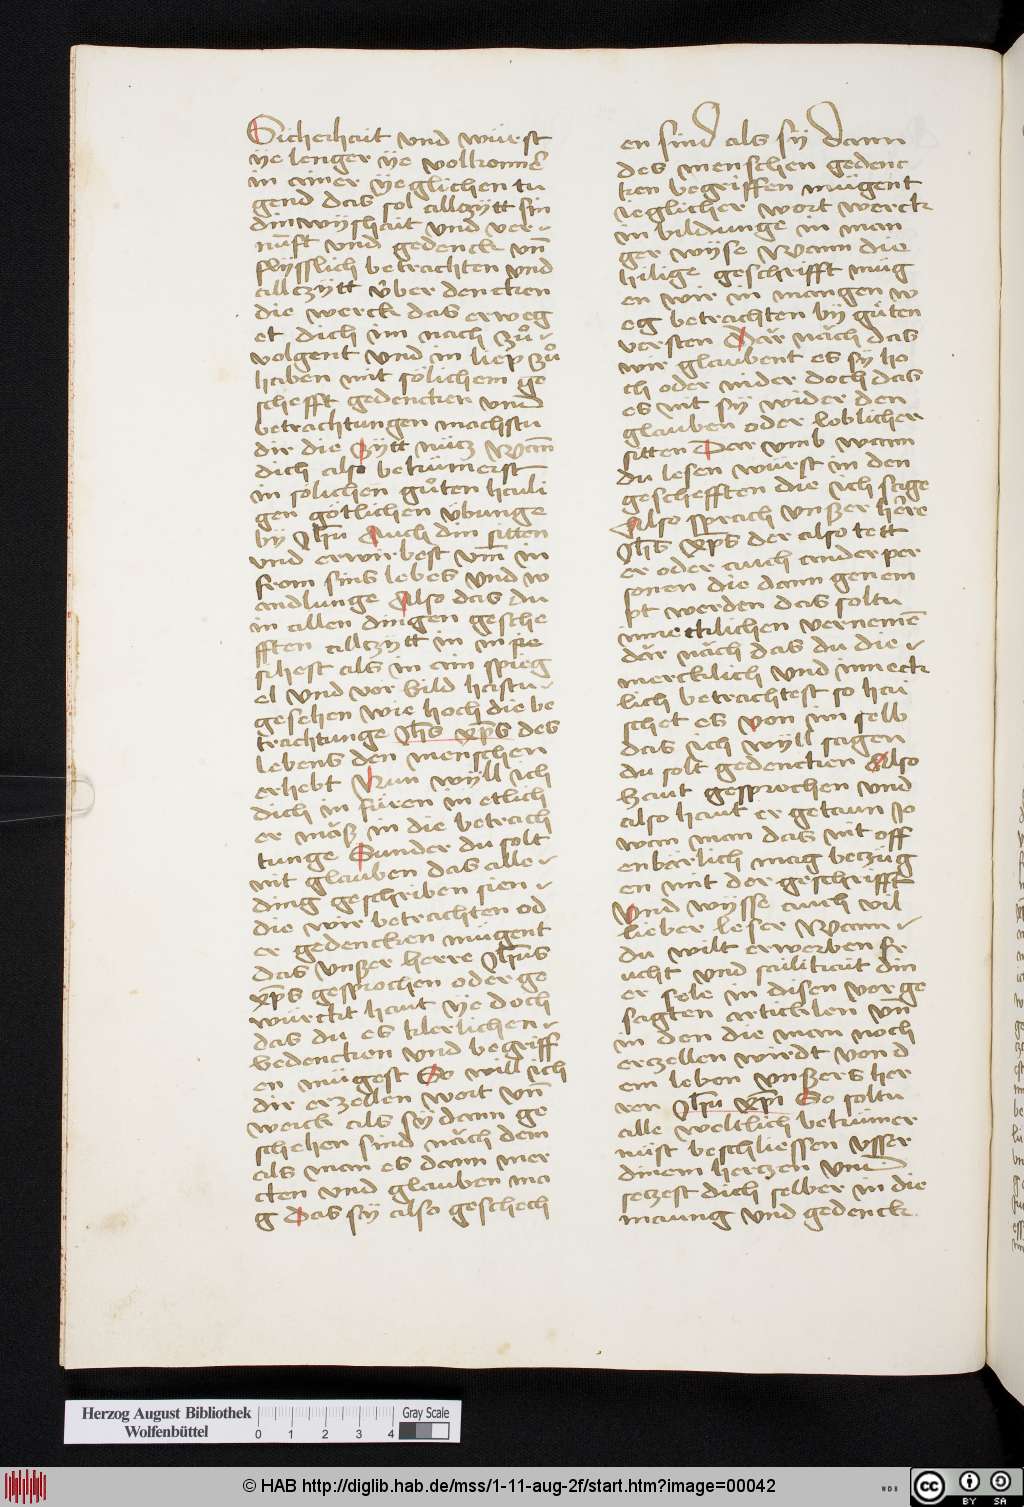 Sicherhait vnd würst
ÿe lenger ÿe volkomē
in ainer ÿeglichen tu
gend das sol allczÿtt sin
din wÿshait vnd ver-
nunft vnd gedenck vn̄
flÿsslich betrachten vnd
allczÿtt v̊ber dencken
die werck das er weg
et dich im nach zů-
volgent vnd in liep zů
haben mit sölichem ge
schefft gedencker vnd
betrachtungen machstu
dir die zÿtt nücz Wan̄
dich also bekümerst
in sölichen gůten haili
gen götlichen übunge
bÿ Jhū Auch din sitten
vnd erwirbest vm̄ in
from sins lebes vnd w
andlunge Also das du
in allen dingen gesche
fften allczÿtt in in sie
sihest als in ain spieg
el vnd vor bild hastu-
gesehen wie hoch die be
trachtunge Jhs xp̄s des
lebens den menschen
erhebt Nun wÿll ich
dich in füren in etlich
er mäß in die betrach
tunge Sunder du solt
nit glauben das alle-
ding geschriben sien-
die wir betrachten od
er gedencken mügent
das vnßer herre Jhūs
xp̄s gesprochen oder ge
würckt haut ÿe doch
das du es klerlichen-
bedencken vnd begriff
en mügest So will ich
dir erzellen wort vn̄
werck als sÿ dann ge
schehen sind näch dem
als man es dann mer
cken vnd glauben ma
g Das sÿ also geschech
en sind als sÿ dann
des menschen gedenc
ken begriffen mügent
ieglicher wort werck
in bildunge in man
ger wÿse Wann die
hilige geschrifft müg
en wir in mangen w
eg betrachten bÿ gůten
versten Där näch das
wir glaubent es sÿ ho
ch oder nider doch das
es nit sÿ wider den
glauben oder loblicher
sitten Dar vmb wann
du lesen würst in den
geschefften die ich sage
Also sprach vnßer here
Jhs xp̄s der also tett
er oder auch ander per
sonen die dann genem
pt werden das soltu
mmerklichen vernemē
där näch das du die-
mercklich vnd inneck
lich betrachtest so hai
schet es von im selb
das ich wÿll sagen
du solt gedencken Also
haut gesprochen vnd
also haut er getaun so
wan man das nit off
enbärlich mag bezüg
en mit der geschrifft
Vnd wÿsse auch vil
lieber leser Wann-
du wilt erwerben fr
ucht vnd sälikait din
er sele in disen vor ge
sagten artickelen vn̄
in den die man noch
erczellen wirdt von d
em leben vnßers her
ren Jhū xp̄i So soltu
alle weltlich bekümer
nüst beschliessen vsser
dinem herczen vnd
seczest dich selber in die
maung vnd gedenck.
Herzog August Bibliothek
Wolfenbüttel
0 1 2 3 4
Gray Scale
© HAB http://diglib.hab.de/mss/1-11-aug-2f/start.htm?image=00042
WDB
cc BY SA